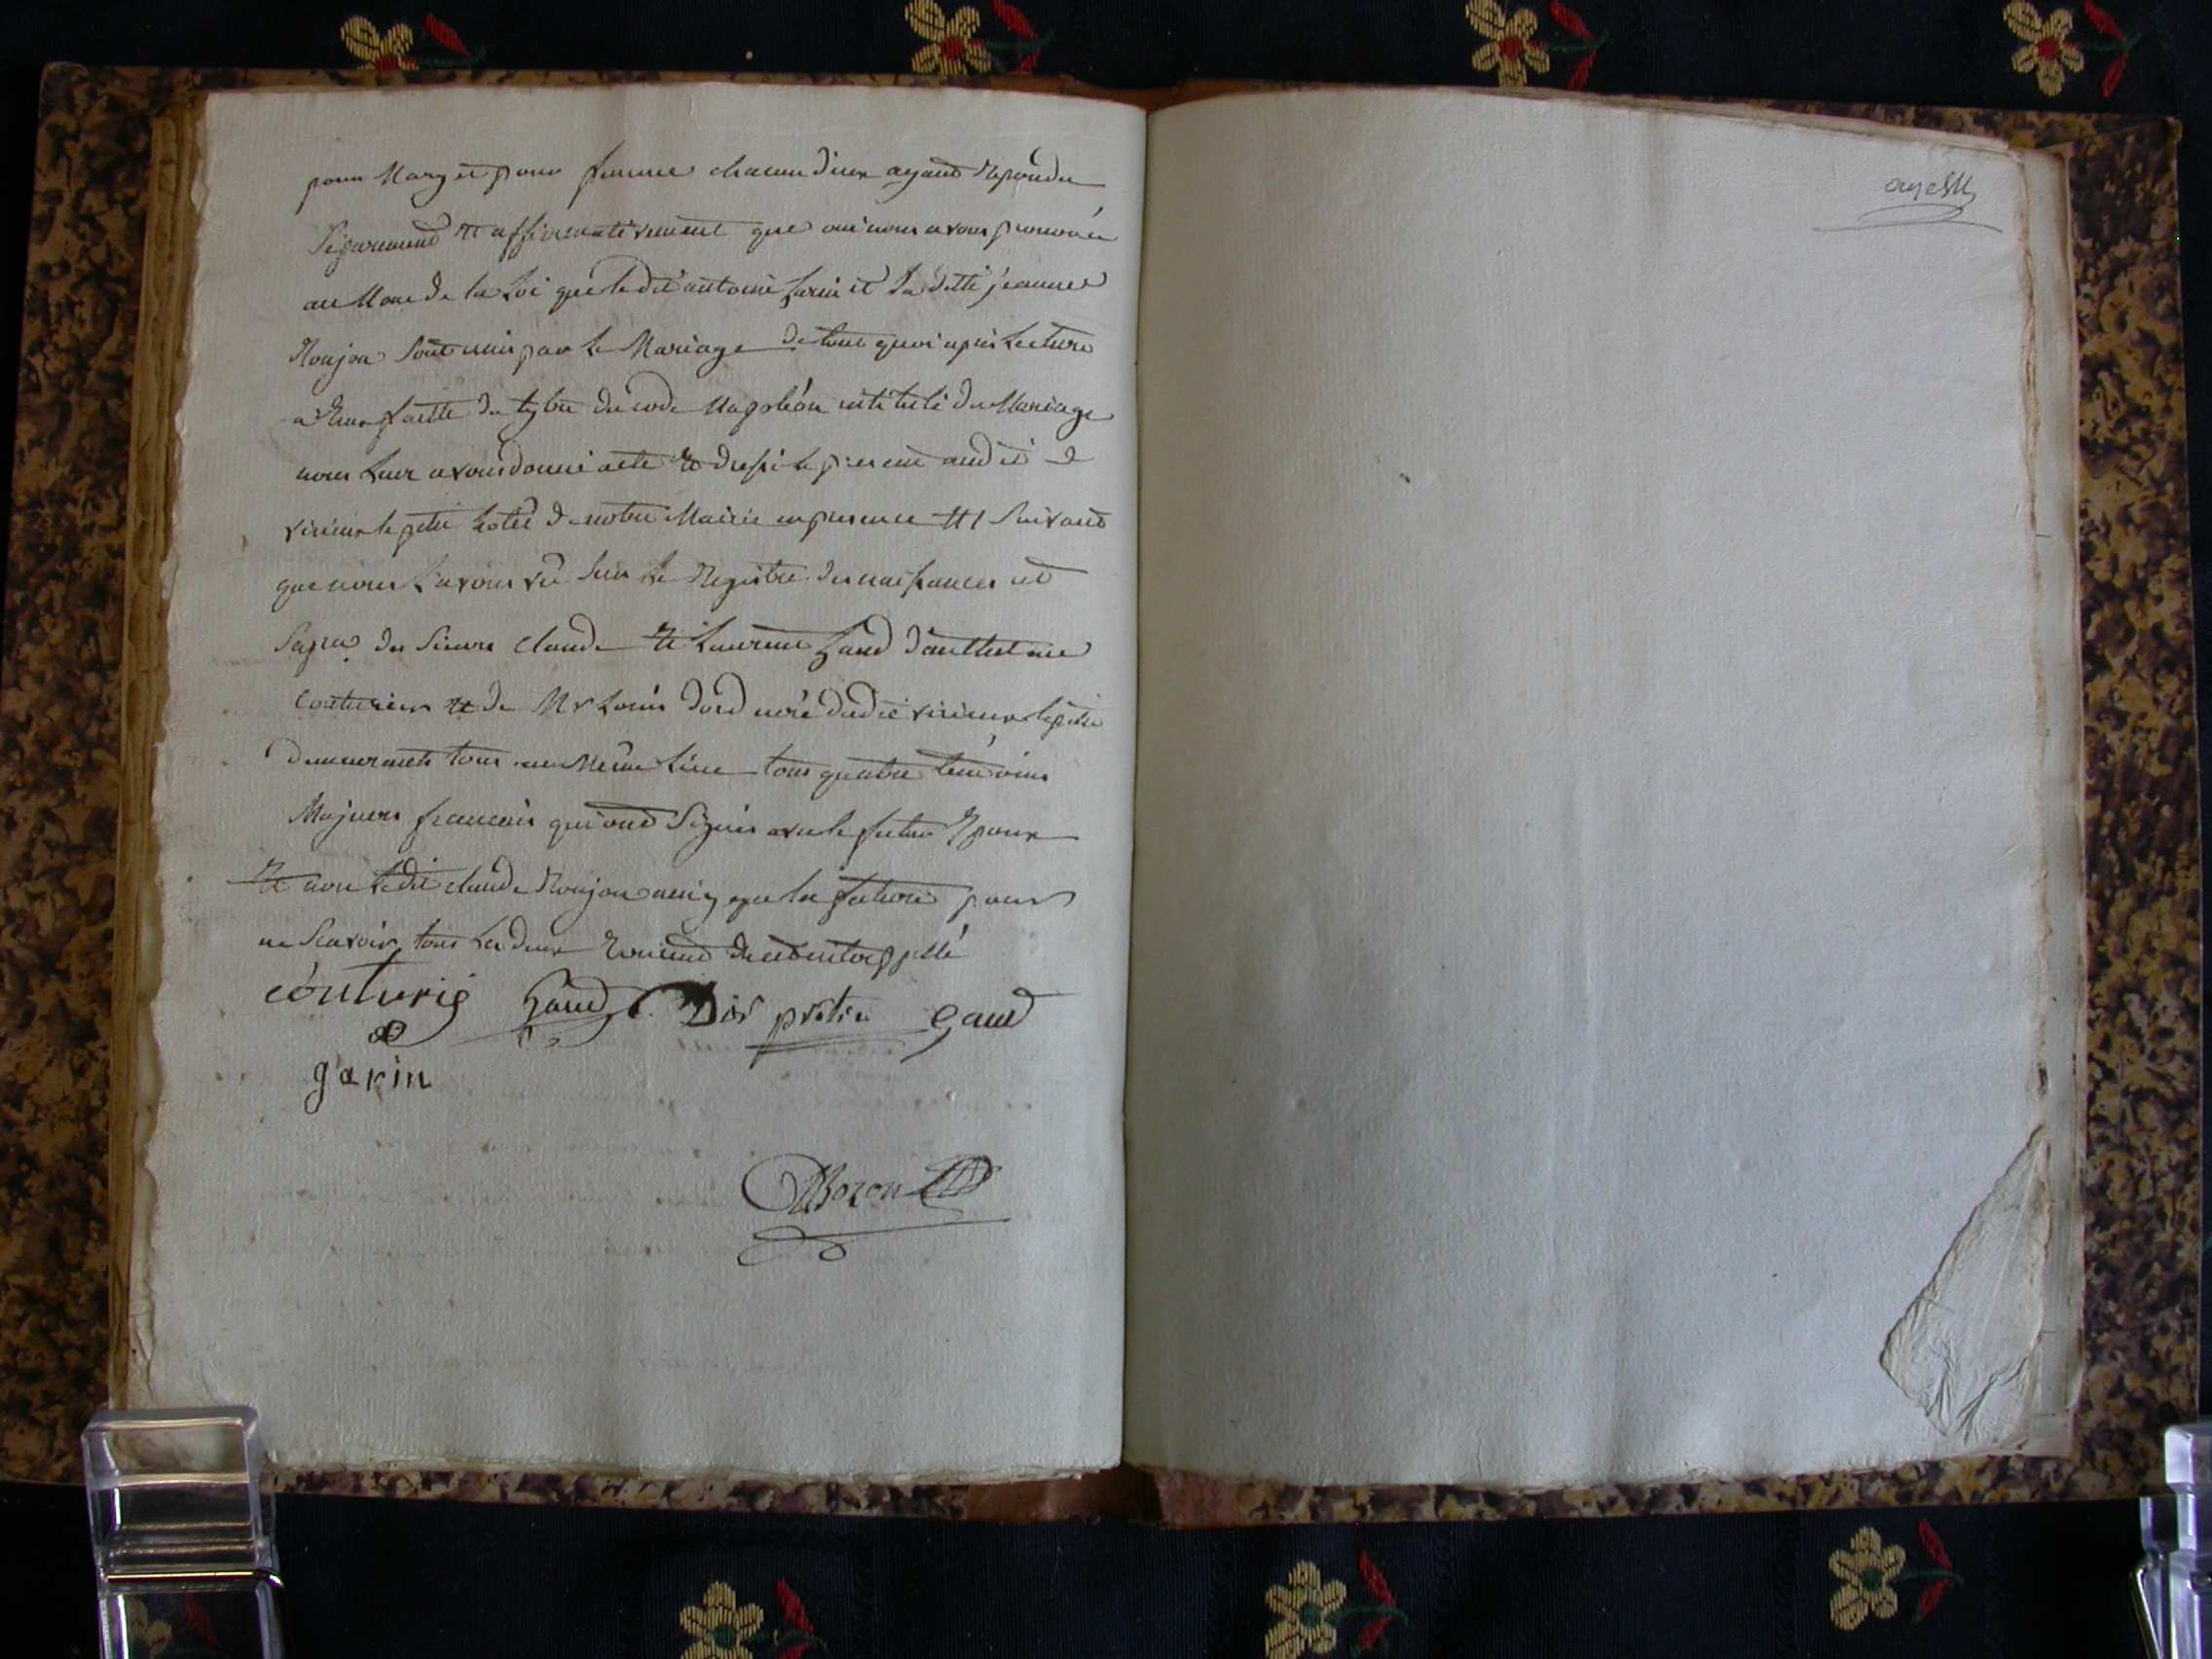 pour Mary et pour femme chacun d'eux ayant Repondu
Separement et affirmativement que oui nous avons prononcé
au Nom de la Loi que le dit antoine Garin et la ditte jeanne
Roujon sont unis par le Mariage de tout quoi apres Lecture
a Eux faitte du tytre du code Napoléon intitulé du Mariage
nous Leur avons donné acte et dressé le present audit
virieu le petit hotel de notre Mairie en presence et suivant
que nous l'avons vu sur le Registre des naissances et
des sieurs claude et Laurent Gaud
Couturier et de Mr Louis dudit virieu le petit
demeurants tous au Meme Lieu tous quatre témoins
Majeurs francais qui ont Signés avec le futur Epoux
et non ledit claude Roujon que la future pour
ne Scavoir tous Les deux
couturié Gaud Dor prêtre Gaud
garin
Bozon